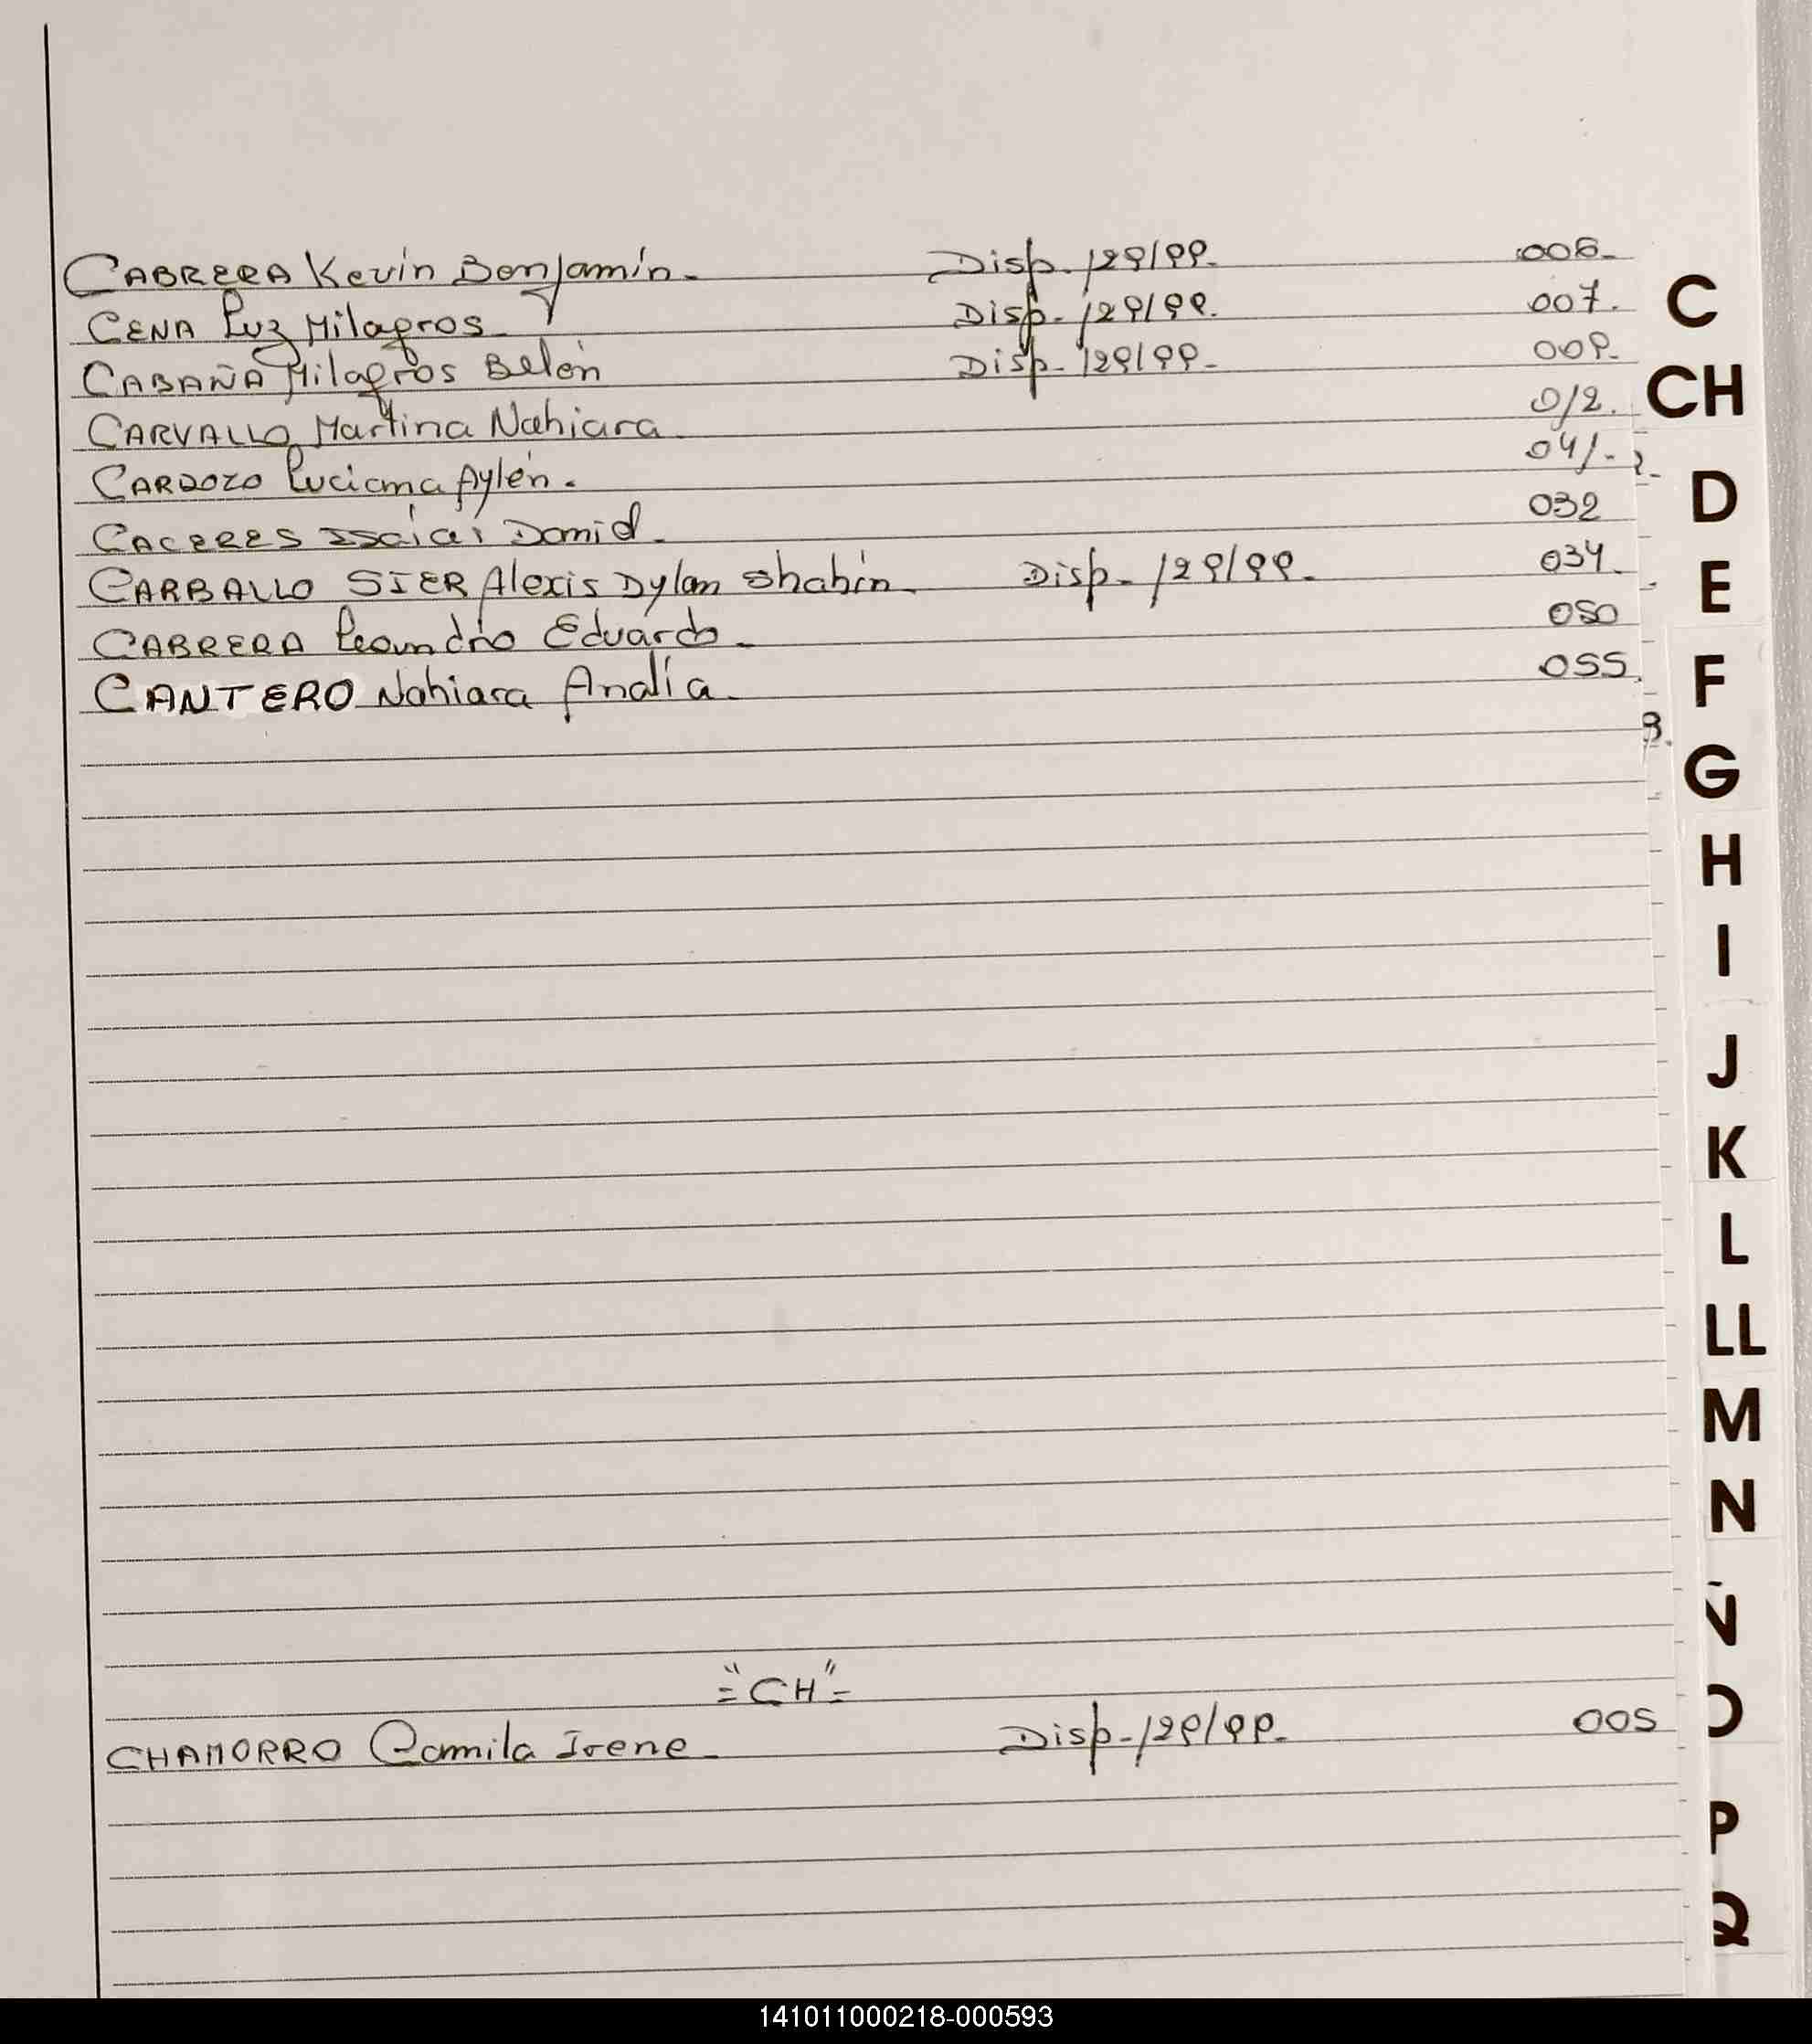 CABRERA Kevin Benjamín. Disp. 129/99. 006.
CENA Luz Milagros. Disp. 129/99. 007.
CABAÑA Milagros Belén Disp. 129/99. 009.
CARVALLO Martina Nahiara. 012.
CARDOZO Luciana Aylén. 041.
CACERES Isaías Daniel. 032
CARBALLO SIER Alexis Dylan Shahín. Disp. 129/99. 034.
CABRERA Leandro Eduardo. 050
CANTERO Nahiara Analía. 055.
="CH"=
CHAMORRO Camila Irene. Disp. 129/99. 005
C
CH
D
E
F
G
H
I
J
K
L
LL
M
N
Ñ
O
P
Q
141011000218-000593